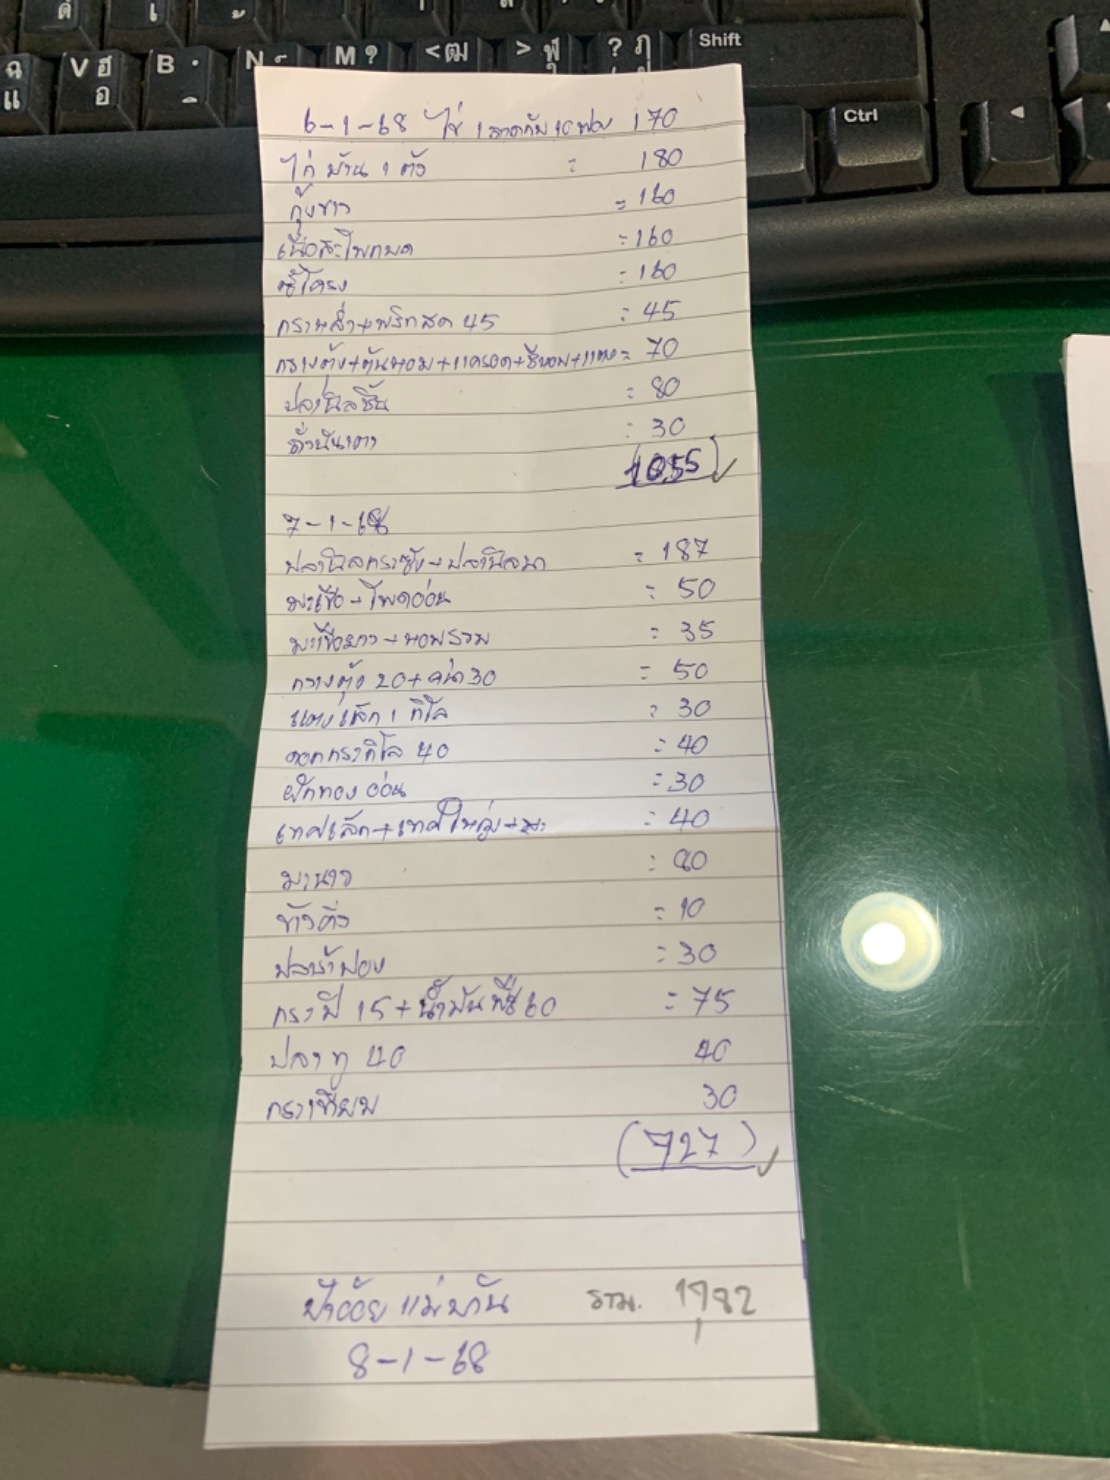 ด เ
ฉ แ V ฮ อ B N M ? < ฒ > ฬ ? ฦ Shift
Ctrl
6-1-68 ไข่ 1 ลาดกับ 10 ฟอง 170
ไก่บ้าน 1 ตัว = 180
กุ้งขาว = 160
เนื้อสะโพกบด = 160
ซี่โครง = 160
กราหล่ำ+พริกสด 45 = 45
กวางตุ้ง+ต้นหอม+แครอด+ชีหอม+แตง = 70
ปลานิลชิ้น = 80
ถั่วฝักยาว = 30
(1055)
7-1-68
ปลานิลกระชัง+ปลานิลนา = 187
มะเขือ+โพดอ่อน = 50
มะเขือยาว+หอมรวม = 35
กวางตุ้ง 20+คน้า 30 = 50
แตงเล็ก 1 กิโล = 30
ดอกกระกิโล 40 = 40
ฟักทองอ่อน = 30
เทศเล็ก+เทศใหญ่+ = 40
มะนาว = 80
ข้าวคั่ว = 10
ปลาร้าฟอง = 30
กระปิ 15+น้ำมันพืช 60 = 75
ปลาทู 40 40
กระเทียม 30
(727)
ป้าอ้อย แม่บ้าน รวม. 1,782
8-1-68